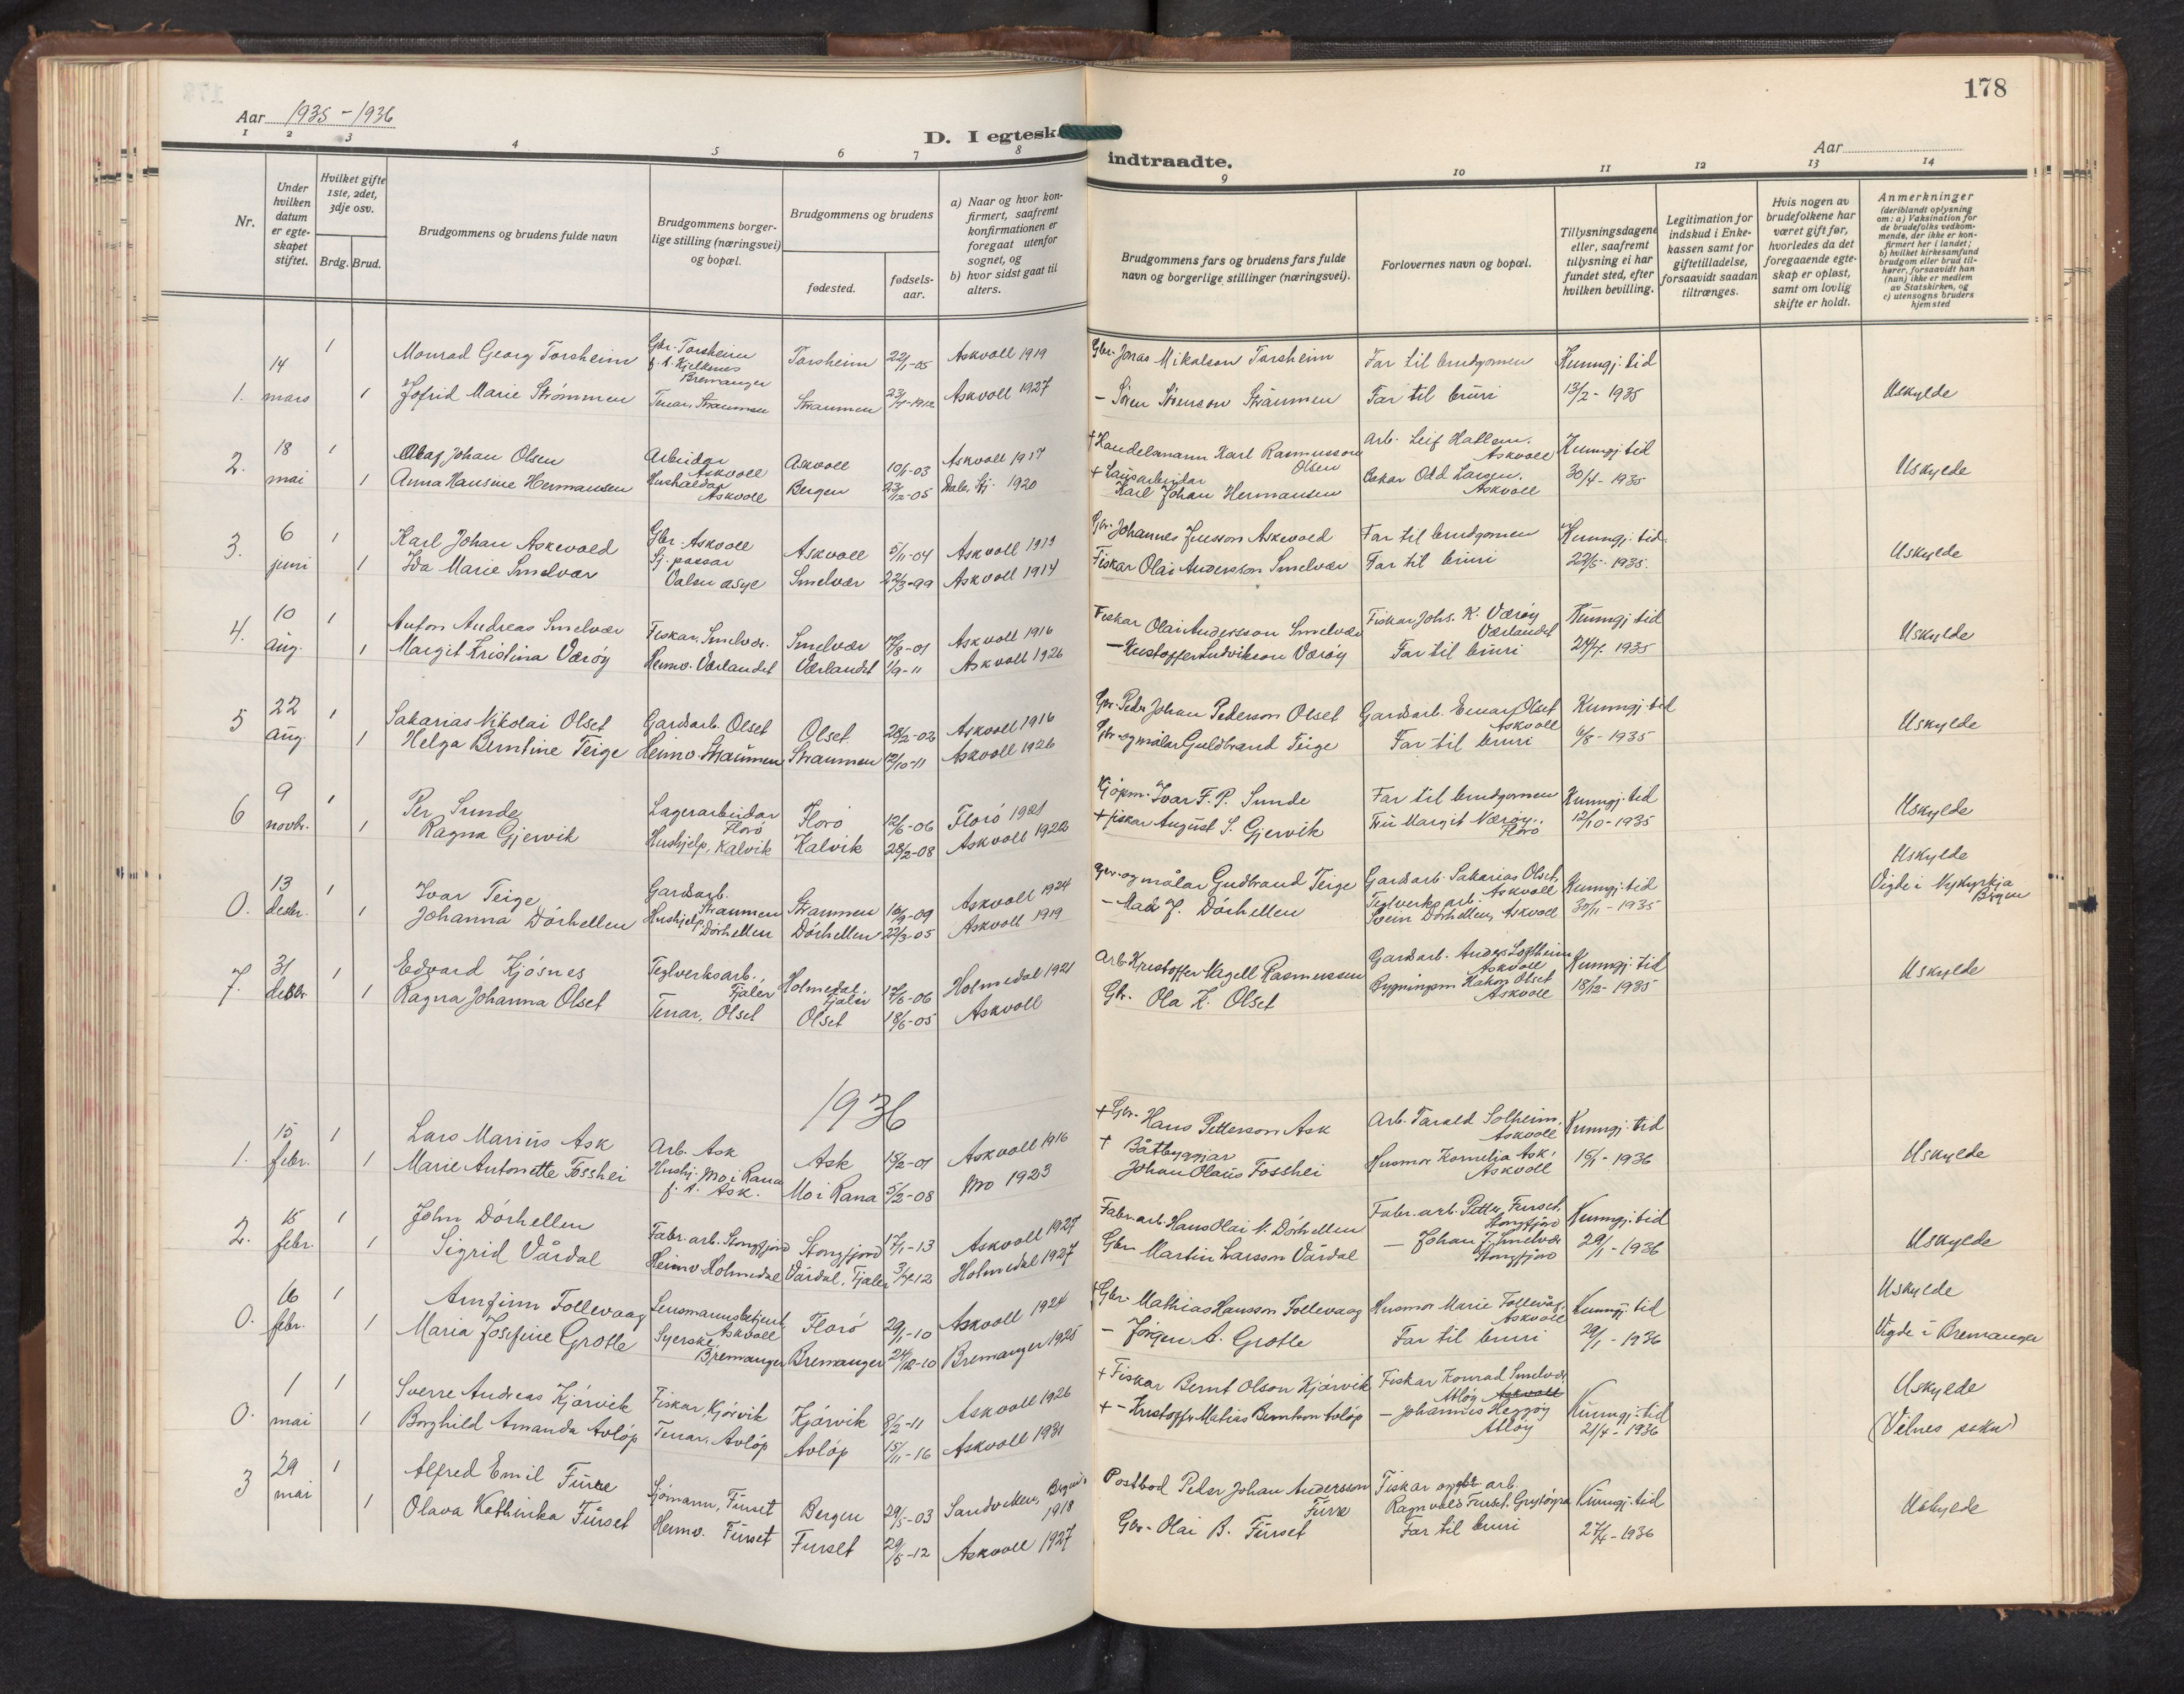 178
Aar 1935 - 1936
D. I egteska
indtraadte.
Aar
1 2 3 4 5 6 7 8
9 10 11 12 13 14
Nr.
Under hvilken datum er egte-skapet stiftet.
Hvilket gifte 1ste, 2det, 3dje osv.
Brdg. Brud.
Brudgommens og brudens fulde navn
Brudgommens borger-lige stilling (næringsvei) og bopæl.
Brudgommens og brudens
fødested.
fødsels-aar.
a) Naar og hvor kon-firmert, saafremt konfirmationen er foregaat utenfor sognet, og
b) hvor sidst gaat til alters.
Brudgommens fars og brudens fars fulde navn og borgerlige stillinger (næringsvei).
Forlovernes navn og bopæl.
Tillysningsdagene eller, saafremt tillysning ei har fundet sted, efter hvilken bevilling.
Legitimation for indskud i Enke-kassen samt for giftetilladelse, forsaavidt saadan tiltrænges.
Hvis nogen av brudefolkene har været gift før, hvorledes da det foregaaende egte-skap er opløst, samt om lovlig skifte er holdt.
Anmerkninger
(deriblandt oplysning om: a) Vaksination for de brudefolks vedkom-mende, der ikke er kon-firmert her i landet; b) hvilket kirkesamfund brudgom eller brud til-hører, forsaavidt han (hun) ikke er medlem av Statskirken, og c) utensogns bruders hjemsted
1. 14 mars 1 Monrad Georg Torsheim Gbr. Torsheim f. t. Kjelkenes Bremanger Torsheim 22/1-05 Askvoll 1919 Gbr. Jonas Mikalson Torsheim Far til brudgomen Kunngj. tid
1 Jofrid Marie Strømmen Tenar, Straumen Straumen Askvoll 1927 - Søren Sørenson Straumen Far til bruri 13/2 - 1935 Uskylde
2. 18 mai 1 Olaf Johan Olsen Arbeidar Askvoll Askvoll 10/1-03 Askvoll 1917 + Handelsmann Karl Rasmusson Olsen Arb. Leif Hatlem. Askvoll Kunngj. tid
1 Anna Hansine Hermansen Hushaldar Askvoll Bergen 23/12-05 Dale, Fj. 1920 + Lausarbeidar Karl Johan Hermansen Oskar Odd Larsen. Askvoll 30/4 - 1935 Uskylde
3. 6 juni 1 Karl Johan Askevold Gbr. Askvoll Askvoll 5/11-04 Askvoll 1919 Gbr. Johannes Jensson Askevold Far til brudgomen Kunngj. tid.
1 Ida Marie Smelvær Smelvær 22/3-99 Askvoll 1914 Fiskar Olai Andersson Smelvær Far til bruri 22/5 - 1935. Uskylde
4. 10 aug. 1 Anton Andreas Smelvær Fiskar, Smelvær. Smelvær Askvoll 1916 Fiskar Olai Andersson Smelvær Fiskar, Johs. K. Værøy Værlandet Kunngj tid
1 Margit Kristina Værøy Heimv. Værlandet Værlandet 1/9-11 Askvoll 1926 - Kristoffer Ludvikson Værøy Far til bruri 1935 Uskylde
5 22 aug. 1 Sakarias Nikolai Olset Gardsarb. Olset Olset 28/2-02 Askvoll 1916 Gbr. Peder Johan Pederson Olset Gardsarb. Einar Olset Askvoll Kunngj. tid
1 Helga Berntine Teige Heimv. Straumen Straumen 12/10-11 Askvoll 1926 Gbr. og målar Guldbrand Teige Far til bruri 6/8 - 1935 Uskylde
6 9 novbr. 1 Per Sunde Lagerarbeidar Florø Florø 12/6-06 Florø 1921 Kjøpm. Ivar F. P. Sunde Far til brudgomen Kunngj. tid
1 Ragna Gjervik Hushjelp, Kalvik Kalvik 28/2-08 Askvoll 1922 + fiskar August S. Gjervik Fru Margit Nærøy. Florø 12/10 - 1935 Uskylde
0. 13 desbr. 1 Ivar Teige Gardsarb. Straumen Straumen 16/9-09 Askvoll 1924 Gbr. og målar Gudbrand Teige Gardsarb. Sakarias Olset, Askvoll Kunngj. tid Uskylde
1 Johanna Dørhellen Hushjelp, Dørhellen Dørhellen 22/3-05 Askvoll 1919 - Mads J. Dørhellen Teglverksarb. Svein Dørhellen, Askvoll 30/11 - 1935 Vigde i Nykyrkja Bergen
7. 31 desbr. 1 Edvard Kjøsnes Teglverksarb., Fjaler Holmedal, Fjaler 17/6-06 Holmedal 1921 Arb. Kristoffer Nagell Rasmussen Gardsarb. Anders Losttheim Askvoll Kunngj. tid
1 Ragna Johanna Olset Tenar, Olset Olset 18/6-05 Askvoll Gbr. Ola K. Olset Bygningsm Håkon Olset Askvoll 18/12 - 1935 Uskylde
1936
1. 15 febr. 1 Lars Marius Ask Arb. Ask Ask 18/2-01 Askvoll 1916 + Gbr. Hans Petterson Ask Arb. Tarald Solheim, Askvoll Kunngj. tid
1 Marie Antonette Fosshei Hushj. Mo i Rana f. t. Ask. Mo i Rana 5/2-08 Mo 1923 + Båtbyggjar Johan Olaus Fosshei Husmor Kornelia Ask, Askvoll 15/1 - 1936 Uskylde
2. 15 febr. 1 John Dørhellen Fabr. arb. Stongfjord Stongfjord 17/1-13 Askvoll 1927 Fabr. arb. Hans Olai N. Dørhellen Fabr. arb. Petter Furset, Stongfjord Kunngj. tid
1 Sigrid Vårdal Heimv. Holmedal Vårdal, Fjaler 3/4-12 Holmedal 1927 Gbr. Martin Larsson Vårdal - Johan J. Smelvær Stongfjord 29/1 - 1936 Uskylde
0. 16 febr. 1 Arnfinn Follevaag Lensmannsbetjent, Askvoll Florø 29/1-10 Askvoll 1924 + Gbr. Mathias Hansson Follevaag Husmor Marie Follevåg, Askvoll Kunngj. tid Uskylde
1 Maria Josefine Grotle Syerske, Bremanger Bremanger 24/12-10 Bremanger 1925 - Jørgen A. Grotle Far til bruri 29/1 - 1936 Vigde i Bremanger
0. 1 mai 1 Sverre Andreas Kjørvik Fiskar, Kjørvik Kjørvik 8/2-11 Askvoll 1926 + Fiskar Bernt Olson Kjørvik Fiskar Konrad Smelvær Atløy Askvoll Uskylde
1 Borghild Amanda Avløp Tenar, Avløp Avløp 15/11-16 Askvoll 1931 + - Kristoffer Matias Berntson Avløp - Johannes Heggøy Atløy Kunngj. tid 21/4 - 1936 (Vilnes sokn)
3 29 mai 1 Alfred Emil Furre Sjømann, Furset Bergen 29/5-03 Sandviken, Bergen 1918 Postbod Peder Johan Andersson Furre Fiskar og arb. Ragnvald Furset, Grytøyra Kunngj. tid
1 Olava Kathinka Furset Heimv. Furset Furset 29/5-12 Askvoll 1927 Gbr. Olai B. Furset Far til bruri 27/4 - 1936 Uskylde